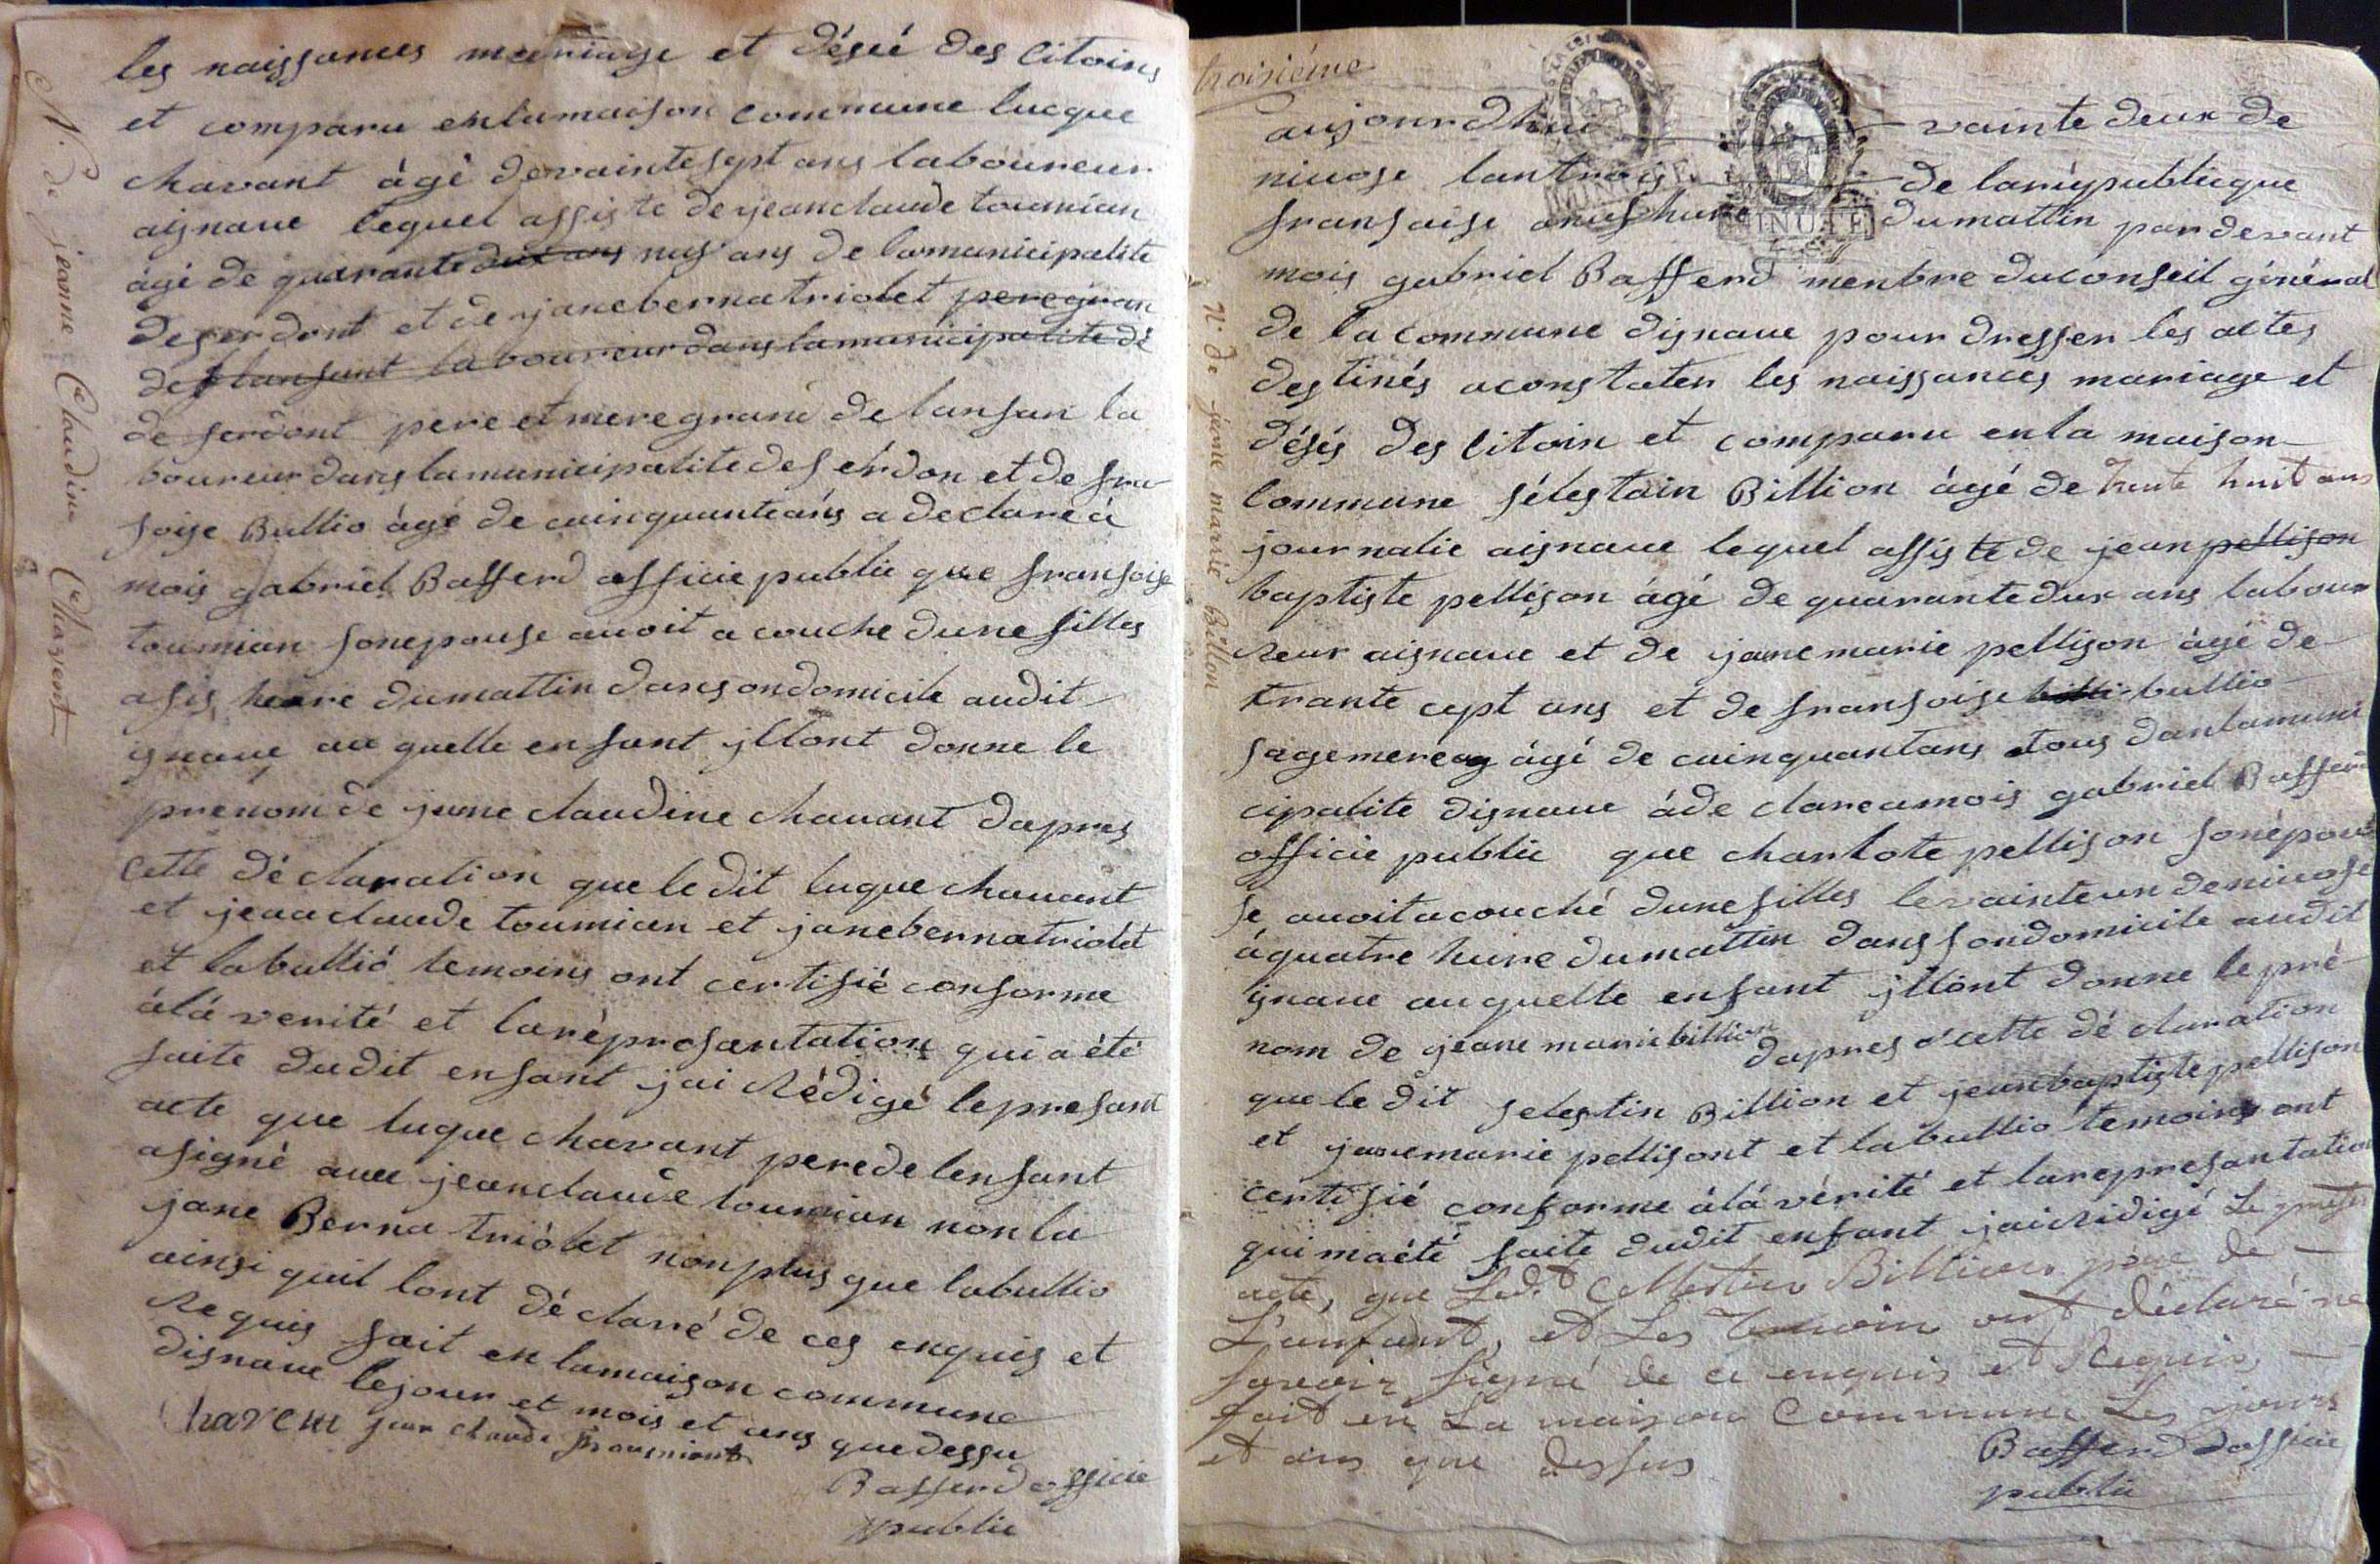 les naissances mariage et désié des Citoins
et comparu enlamaison commune lucque
chavant àgé devaintesept ans laboureur
aignaue lequel assisté de jeanclaude toumian
àgé de quarante duit ans nuf ans de lamunicipalité
deserdont et de janebernatriolet peregran
de lansant laboureurdanslamunicipalité dé
de serdont pere et mere grand de lansan la
boureur danslamunicipalitedesérdon et de fra
soise Bullio àgé de cuinquanteans a declaré à
mois gabriel Bafferd officie public que fransoise
toumian sonepouse auoit acouche dune filles
asis heure dumattin dansondomicile audit
ignaue au quelle ensant illont donne le
prenom de jeane claudine chauant dapres
cette déclaration que ledit luque chauant
et jeanclaude toumian et janebernatriolet
et labullió temoins ont certifié conforme
àlá verité et laréprésantation qui a été
faite dudit ensant jai Rédigé lepresant
acte que luque chavant perede lensant
asigné auec jeanclaude toumian non la
jane Berna triólet nonplus que labullio
ainsi quil lont déclaré de ces enquis et
Requis fait en lamaison commune
dignaue lejour et mois et ans quedessu
Chavent jean claude toumiant
Bafferd officie
public
N. de jeanne Claudine Chavent
troisiéme
aujourdhui vainte deux de
niuose lantrois de larépublicque
fransaise onushure dumattin pardevant
MINUTE
mois gabriel Bafferd menbre duconseil général
de la commune dignaue pour dresser les actes
destinés aconstater les naissances mariage et
désés des Citoin et comparu enla maison
commune sélestain Billion àgé de trente huit ans
journalie aignaue lequel assisté de jean pellison
baptiste pellison àgé de quarantedux ans labou
reur aignaue et de janemarie pellison àgé de
trante cept ans et de fransoise billi bullio
sagemere àgé de cuinquantans tous danlamuni
cipalité dignaue àdeclareamois gabriel Bafferd
officie public que charlote pellison sonépou
se auoitacouché dunefilles levainteun deniuose
àquatre hure dumattin dans sondomicile audit
ignaue auquelle enfant illont donne lepré
nom de jeane marie billion dapres cette déclaration
que le dit selestin Billion et jeanbaptiste pellison
et janemarie pellisont et labullio temoins ont
certifié conforme àlá vérité et larepresantatio
qui maété faite dudit enfant jairédigé Le present
acte, que Led.t Cellestien Billion pere de
L'enfant, et Les Temoin ont déclaré ne
savoir signé de ce enquis et Requis,
fait en La maison Commune Les jours
et ans que dessus
Bafferd officie
public
N. de jeane marie Billon